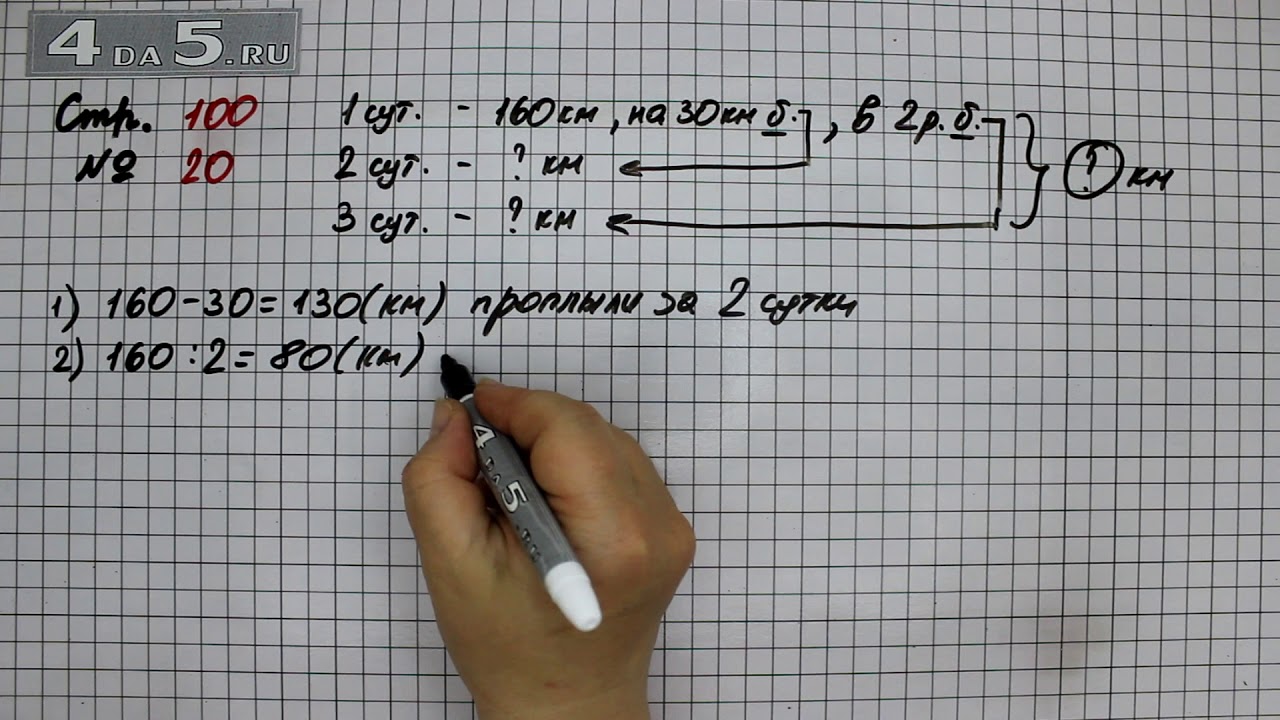 4DA5.RU
Стр. 100
№ 20
1 сут. - 160 км, на 30 км б., в 2 р. б.
2 сут. - ? км
3 сут. - ? км
? км
1) 160-30=130(км) проплыли за 2 сутки
2) 160:2=80(км)
4DA5.RU